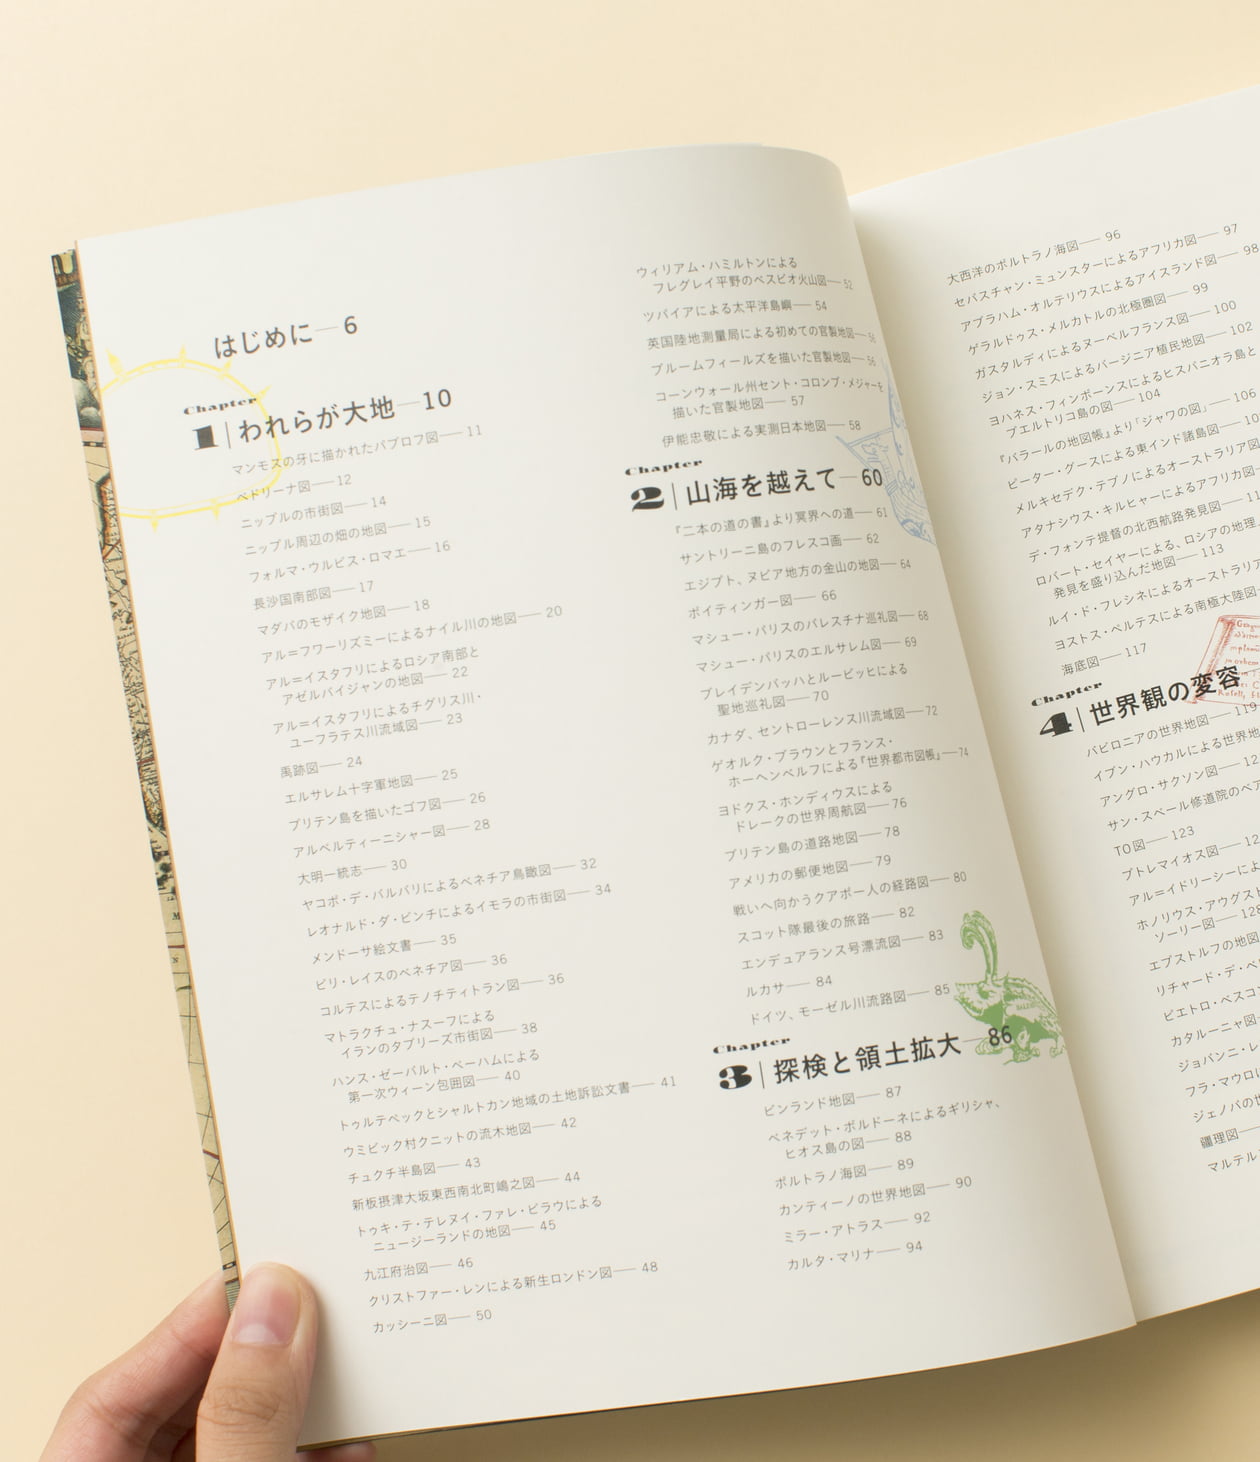 はじめに—6
Chapter
1 われらが大地—10
マンモスの牙に描かれたパブロフ図—11
ベドリーナ図—12
ニップルの市街図—14
ニップル周辺の畑の地図—15
フォルマ・ウルビス・ロマエ—16
長沙国南部図—17
マダバのモザイク地図—18
アル=フワーリズミーによるナイル川の地図—20
アル=イスタフリによるロシア南部と
アゼルバイジャンの地図—22
アル=イスタフリによるチグリス川・
ユーフラテス川流域図—23
禹跡図—24
エルサレム十字軍地図—25
ブリテン島を描いたゴフ図—26
アルベルティーニシャー図—28
大明一統志—30
ヤコポ・デ・バルバリによるベネチア鳥瞰図—32
レオナルド・ダ・ビンチによるイモラの市街図—34
メンドーサ絵文書—35
ピリ・レイスのベネチア図—36
コルテスによるテノチティトラン図—36
マトラクチュ・ナスーフによる
イランのタブリーズ市街図—38
ハンス・ゼーバルト・ベーハムによる
第一次ウィーン包囲図—40
トゥルテペックとシャルトカン地域の土地訴訟文書—41
ウミビック村クニットの流木地図—42
チュクチ半島図—43
新板摂津大坂東西南北町嶋之図—44
トゥキ・テ・テレヌイ・ファレ・ピラウによる
ニュージーランドの地図—45
九江府治図—46
クリストファー・レンによる新生ロンドン図—48
カッシーニ図—50
ウィリアム・ハミルトンによる
フレグレイ平野のベスビオ火山図—52
ツパイアによる太平洋島嶼—54
英国陸地測量局による初めての官製地図—56
ブルームフィールズを描いた官製地図—56
コーンウォール州セント・コロンブ・メジャーを
描いた官製地図—57
伊能忠敬による実測日本地図—58
Chapter
2 山海を越えて—60
『二本の道の書』より冥界への道—61
サントリーニ島のフレスコ画—62
エジプト、ヌビア地方の金山の地図—64
ポイティンガー図—66
マシュー・パリスのパレスチナ巡礼図—68
マシュー・パリスのエルサレム図—69
ブレイデンバッハとルービッヒによる
聖地巡礼図—70
カナダ、セントローレンス川流域図—72
ゲオルク・ブラウンとフランス・
ホーヘンベルフによる『世界都市図帳』—74
ヨドクス・ホンディウスによる
ドレークの世界周航図—76
ブリテン島の道路地図—78
アメリカの郵便地図—79
戦いへ向かうクアポー人の経路図—80
スコット隊最後の旅路—82
エンデュアランス号漂流図—83
ルカサ—84
ドイツ、モーゼル川流路図—85
Chapter
3 探検と領土拡大—86
ビンランド地図—87
ベネデット・ボルドーネによるギリシャ、
ヒオス島の図—88
ポルトラノ海図—89
カンティーノの世界地図—90
ミラー・アトラス—92
カルタ・マリナ—94
大西洋のポルトラノ海図—96
セバスチャン・ミュンスターによるアフリカ図—97
アブラハム・オルテリウスによるアイスランド図—98
ゲラルドゥス・メルカトルの北極圏図—99
ガスタルディによるヌーベルフランス図—100
ジョン・スミスによるバージニア植民地図—102
ヨハネス・フィンボーンスによるヒスパニオラ島と
プエルトリコ島の図—104
『バラールの地図帳』より「ジャワの図」—106
ピーター・グースによる東インド諸島図
メルキセデク・テブノによるオーストラリア図
アタナシウス・キルヒャーによるアフリカ図
デ・フォンテ提督の北西航路発見図
ロバート・セイヤーによる、ロシアの地理
発見を盛り込んだ地図—113
ルイ・ド・フレシネによるオーストラリア
ヨストス・ペルテスによる南極大陸図
海底図—117
Chapter
4 世界観の変容
バビロニアの世界地図—119
イブン・ハウカルによる世界地
アングロ・サクソン図
サン・スベール修道院のベア
TO図—123
プトレマイオス図
アル=イドリーシーによ
ホノリウス・アウグスト
ソーリー図—128
エブストルフの地図
リチャード・デ・ベ
ピエトロ・ベスコ
カタルーニャ図
ジョバンニ・レ
フラ・マウロに
ジェノバの世
疆理図
マルテル